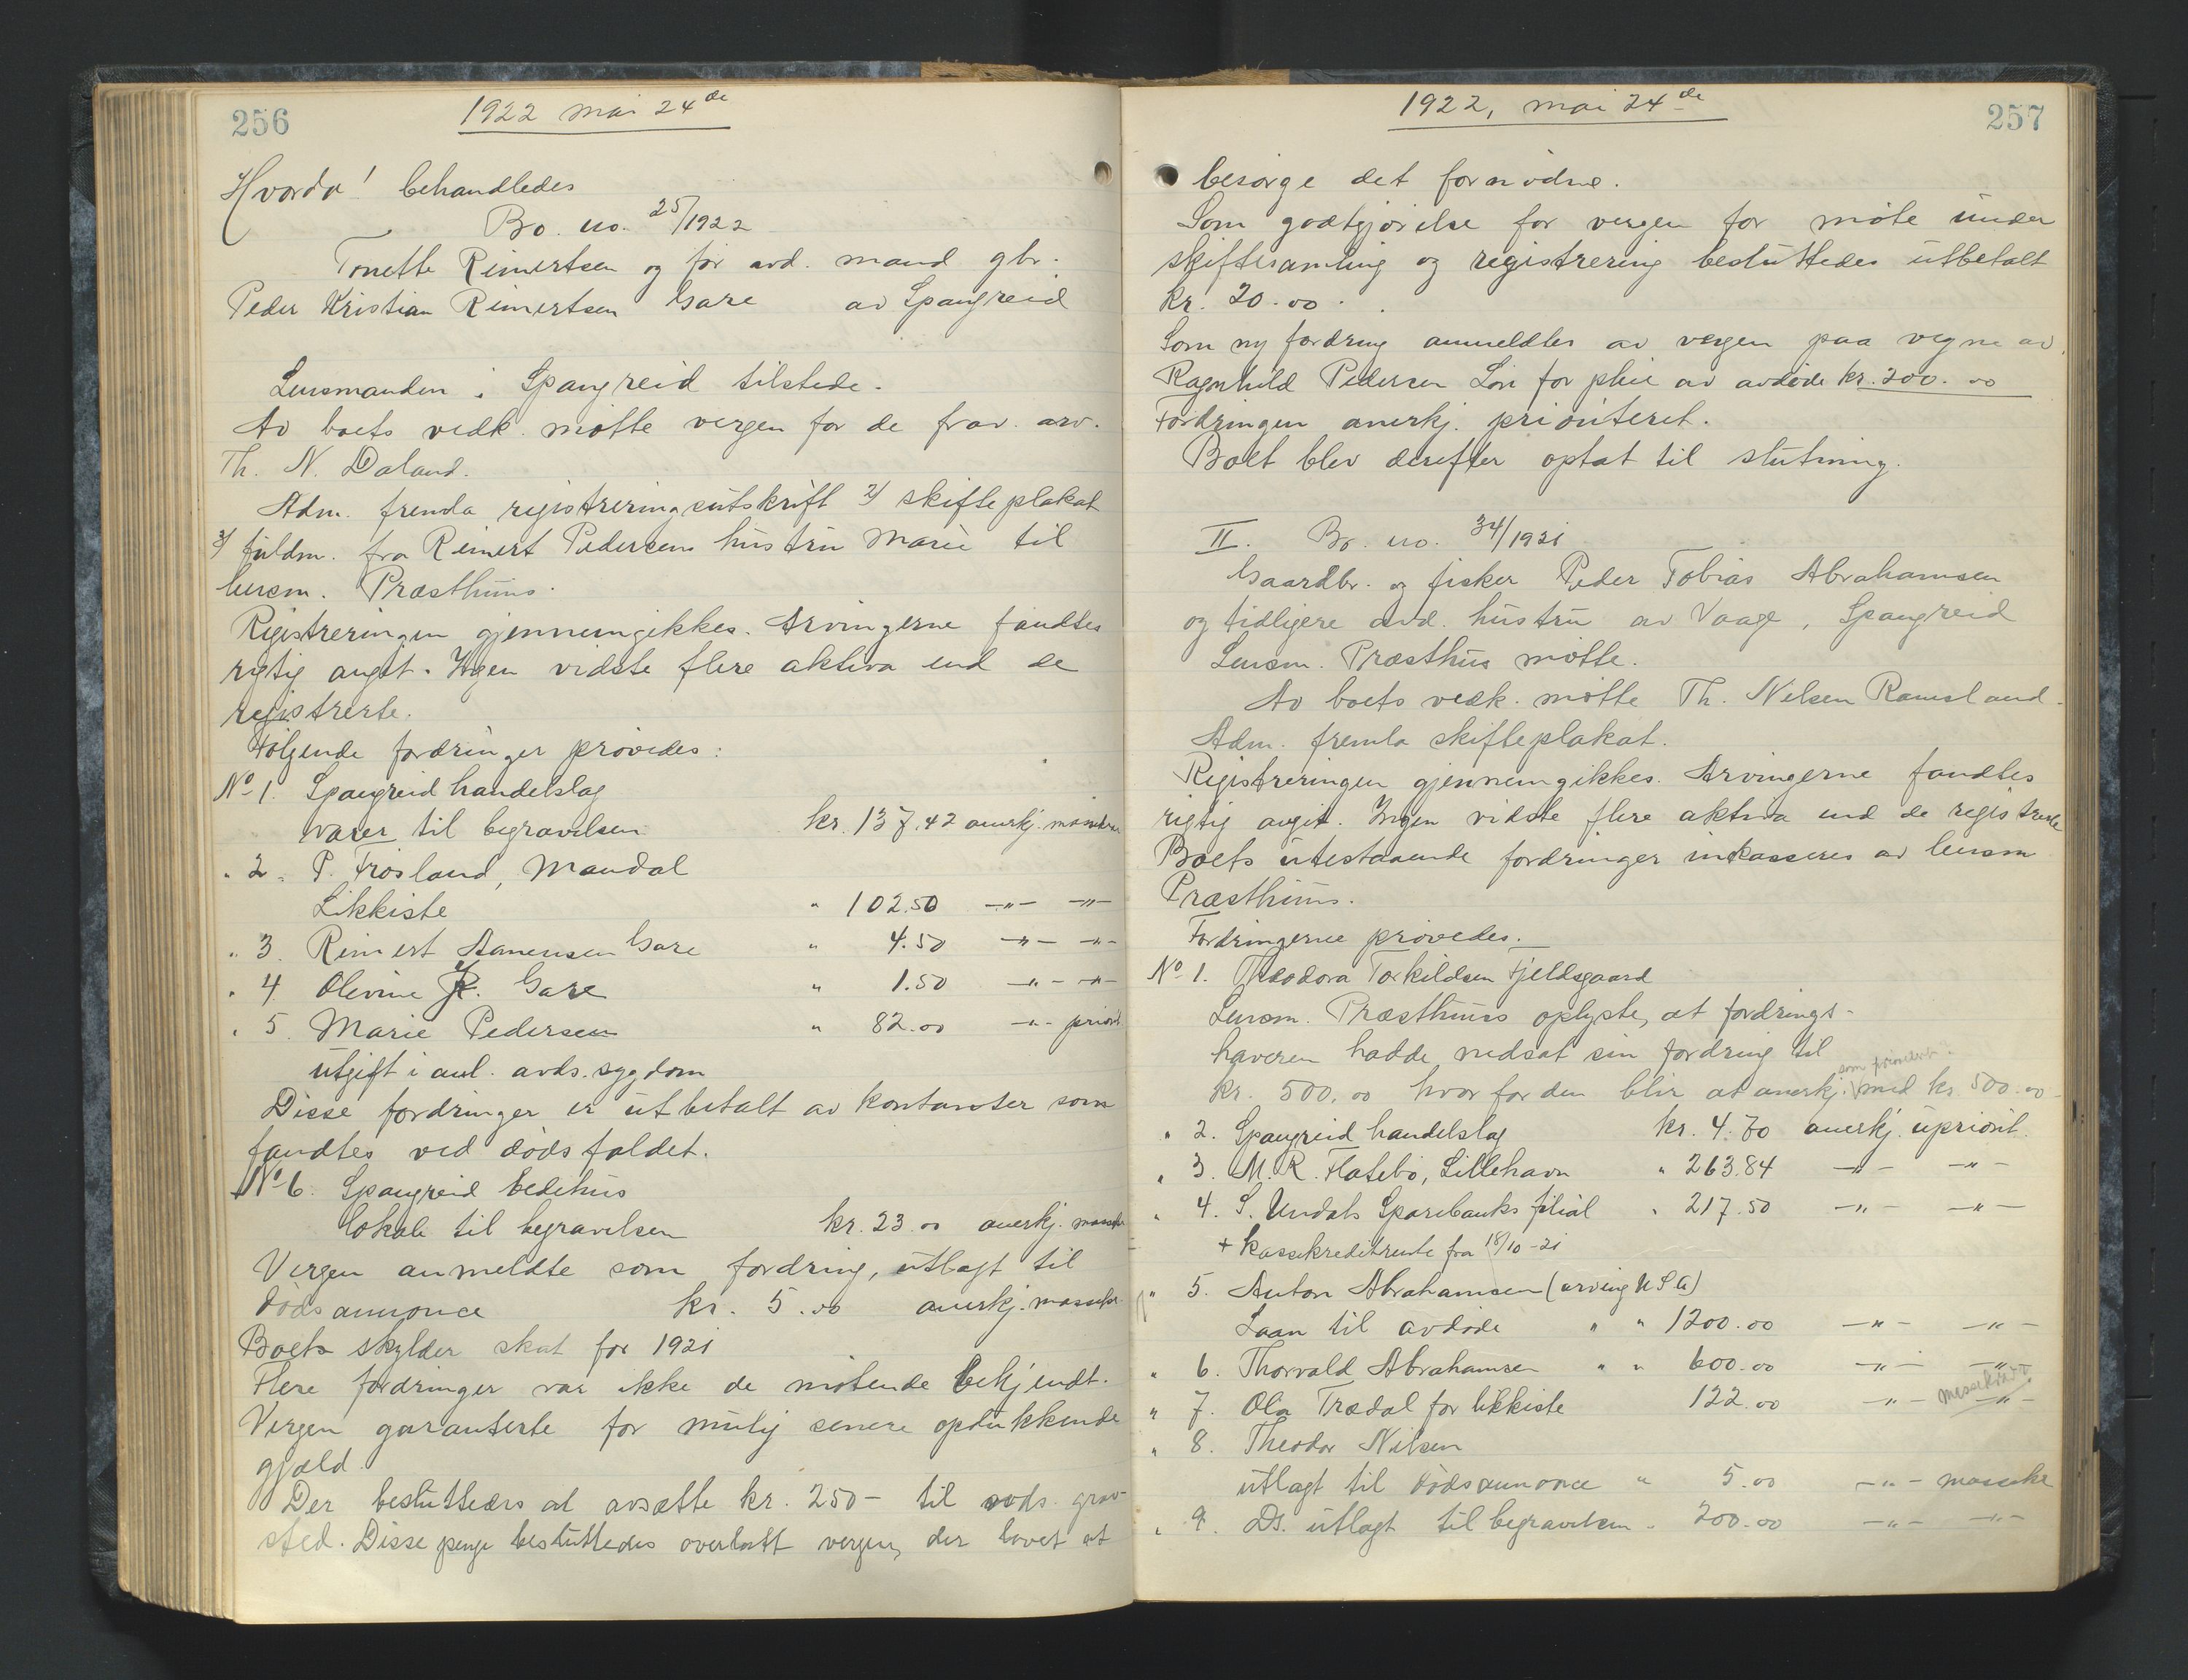 256
1922 mai 24de
Hvorda! behandledes
Bo. no. 25/1922
Tonette Reinertsen og før avd. mand gbr.
Peder Kristian Reinertsen Gare av Spangreid
Lensmanden i Spangreid tilstede.
Av boets vedk. møtte vergen for de frav. arv.
Th. N. Daland.
Adm. fremla registreringsutskrift 2/ skifteplakat
3/ fuldm. fra Reinert Pedersens hustru Marie til
lensm. Præsthuus.
Registreringen gjennemgikkes. Arvingerne fandtes
rigtig angit. Ingen vidste flere aktiva end de
registrerte.
Følgende fordringer prøvedes:
No 1. Spangreid handelslag
varer til begravelsen kr. 137.42 anerkj.
" 2. P. Frøsland, Mandal
Likkiste " 102.50 -"- -"-
" 3. Reinert Aanensen Gare " 4.50 -"- -"-
" 4 Olevine Gare " 1.50 -"- -"-
" 5. Marie Pedersen " 82.00 -"- priorit
utgift i anl. avds. sygdom
Disse fordringer er utbetalt av kontanter som
fandtes ved dødsfaldet.
No 6. Spangreid bedehus
Lokale til begravelsen kr. 23.00 anerkj. massekr
Vergen anmeldte som fordring, utlagt til
dødsannonce kr. 5.00 anerkj. massekr.
Boets skylder skat for 1921
Flere fordringer var ikke de møtende bekjendt.
Vergen garanterte for mulig senere opdukkende
gjæld.
Der besluttedes at avsætte kr. 250- til avds. grav-
sted. Disse penge besluttedes overlatt vergen, der lovet at
257
1922, mai 24de
besørge det fornødne.
Som godtgjørelse for vergen for møte under
skiftesamling og registrering besluttedes utbetalt
kr. 20.00.
Som ny fordring anmeldtes av vergen paa vegne av
Ragnhild Pedersen Løn for pleie av avdøde kr. 200.00
Fordringen anerkj. prioriteret.
Boet blev derefter optat til slutning.
II. Bo. no. 34/1921
Gaardbr. og fisker Peder Tobias Abrahamsen
og tidligere avd. hustru av Vaage, Spangreid
Lensm. Præsthus møtte.
Av boets vedk. møtte Th. Nilsen Ramsland.
Adm. fremla skifteplakat.
Registreringen gjennemgikkes. Arvingerne fandtes
rigtig angit. Ingen vidste flere aktiva end de registrerte
Boets utestaaende fordringer inkasseres av lensm
Præsthuus.
Fordringerne prøvedes.
No 1. Theodora Torkildsen Fjeldsgaard
Lensm. Præsthuus oplyste, at fordrings-
haveren hadde nedsat sin fordring til
som prioritert?
kr. 500.00 hvorfor den blir at anerkj. med kr. 500.00
" 2. Spangreid handelslag kr. 4.70 anerkj. upriorit.
" 3. M. R. Flatebø, Lillehavn " 263.84 -"- -"-
" 4. S. Undals Sparebanks filial " 217.50 -"- -"-
+ kassekreditrente fra 18/10-21
" 5. Anton Abrahamsen (arving U S A)
Laan til avdøde " " 1200.00 -"- -"-
" 6. Thorvald Abrahamsen " " 600.00 -"- -"-
" 7. Ola Trædal for likkiste 122.00 -"- -"- massekrav
" 8. Theodor Nilsen
utlagt til dødsannonce " 5.00 -"- massekr
" 9. Ds. utlagt til begravelsen " 200.00 -"- -"-